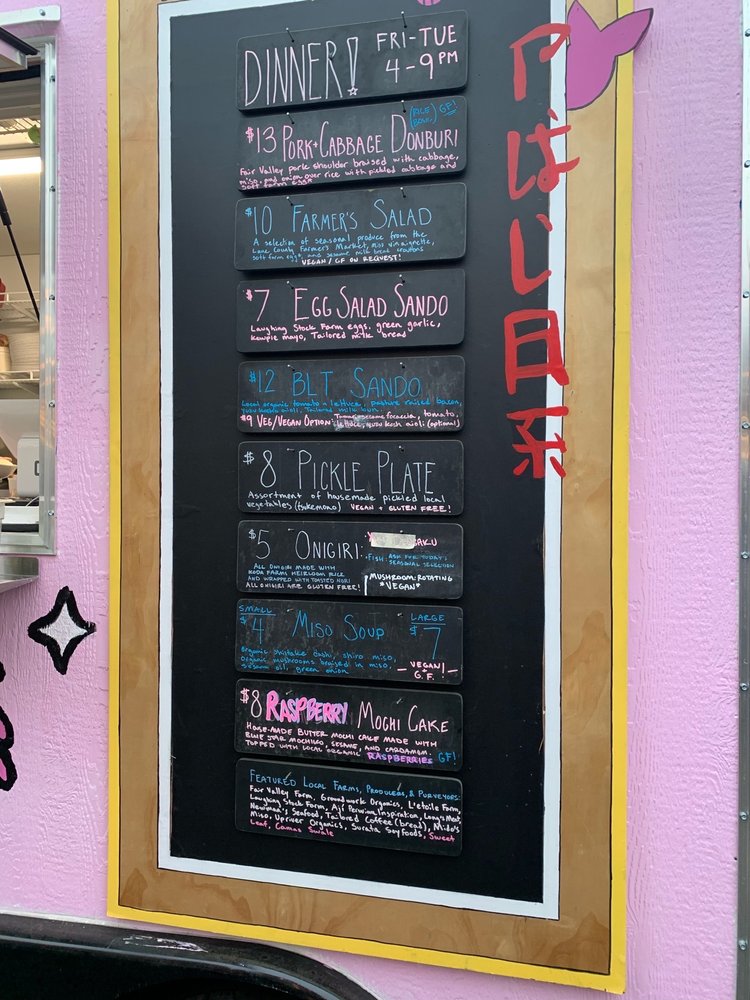 DINNER!
FRI-TUE
4-9PM
$13 PORK + CABBAGE DONBURI
(RICE BOWL) GF!
Fair Valley pork shoulder braised with cabbage,
miso, and onion over rice with pickled cabbage and
soft farm eggs
$10 FARMER'S SALAD
A selection of seasonal produce from the
Lane County Farmer's Market, miso vinaigrette,
soft farm egg, and sesame milk bread croutons
VEGAN/GF ON REQUEST!
$7 EGG SALAD SANDO
Laughing Stock Farm eggs, green garlic,
kewpie mayo, Tailored milk bread
$12 BLT SANDO
Local organic tomato + lettuce, pasture raised bacon,
yuzu kosho aioli, Tailored milk bun
$9 VEG/VEGAN OPTION: sesame focaccia, tomato,
lettuce, yuzu kosh aioli (optional)
$8 PICKLE PLATE
Assortment of housemade pickled local
vegetables (tsukemono) VEGAN + GLUTEN FREE!
$5 ONIGIRI:
ALL ONIGIRI MADE WITH
KODA FARMS HEIRLOOM RICE
AND WRAPPED WITH TOASTED NORI
ALL ONIGIRI ARE GLUTEN FREE!
AKU
FISH: ASK FOR TODAY'S
SEASONAL SELECTION
MUSHROOM: ROTATING
*VEGAN*
SMALL
$4
MISO SOUP
LARGE
$7
Organic shiitake dashi, shiro miso,
organic mushrooms braised in miso,
sesame oil, green onion
— VEGAN! —
+
G.F.
$8 RASPBERRY MOCHI CAKE
HOUSE-MADE BUTTER MOCHI CAKE MADE WITH
BLUE STAR MOCHIKO, SESAME, AND CARDAMOM.
TOPPED WITH LOCAL ORGANIC RASPBERRIES GF!
FEATURED LOCAL FARMS, PRODUCERS, & PURVEYORS:
Fair Valley Farm, Groundwork Organics, L'etoile Farm,
Laughing Stock Farm, Aji Peruvian Inspiration, Long's Meat,
Newman's Seafood, Tailored Coffee (bread), Milo's
Miso, Upriver Organics, Surata Soyfoods, Sweet
Leaf, Camas Swale
やばい日系